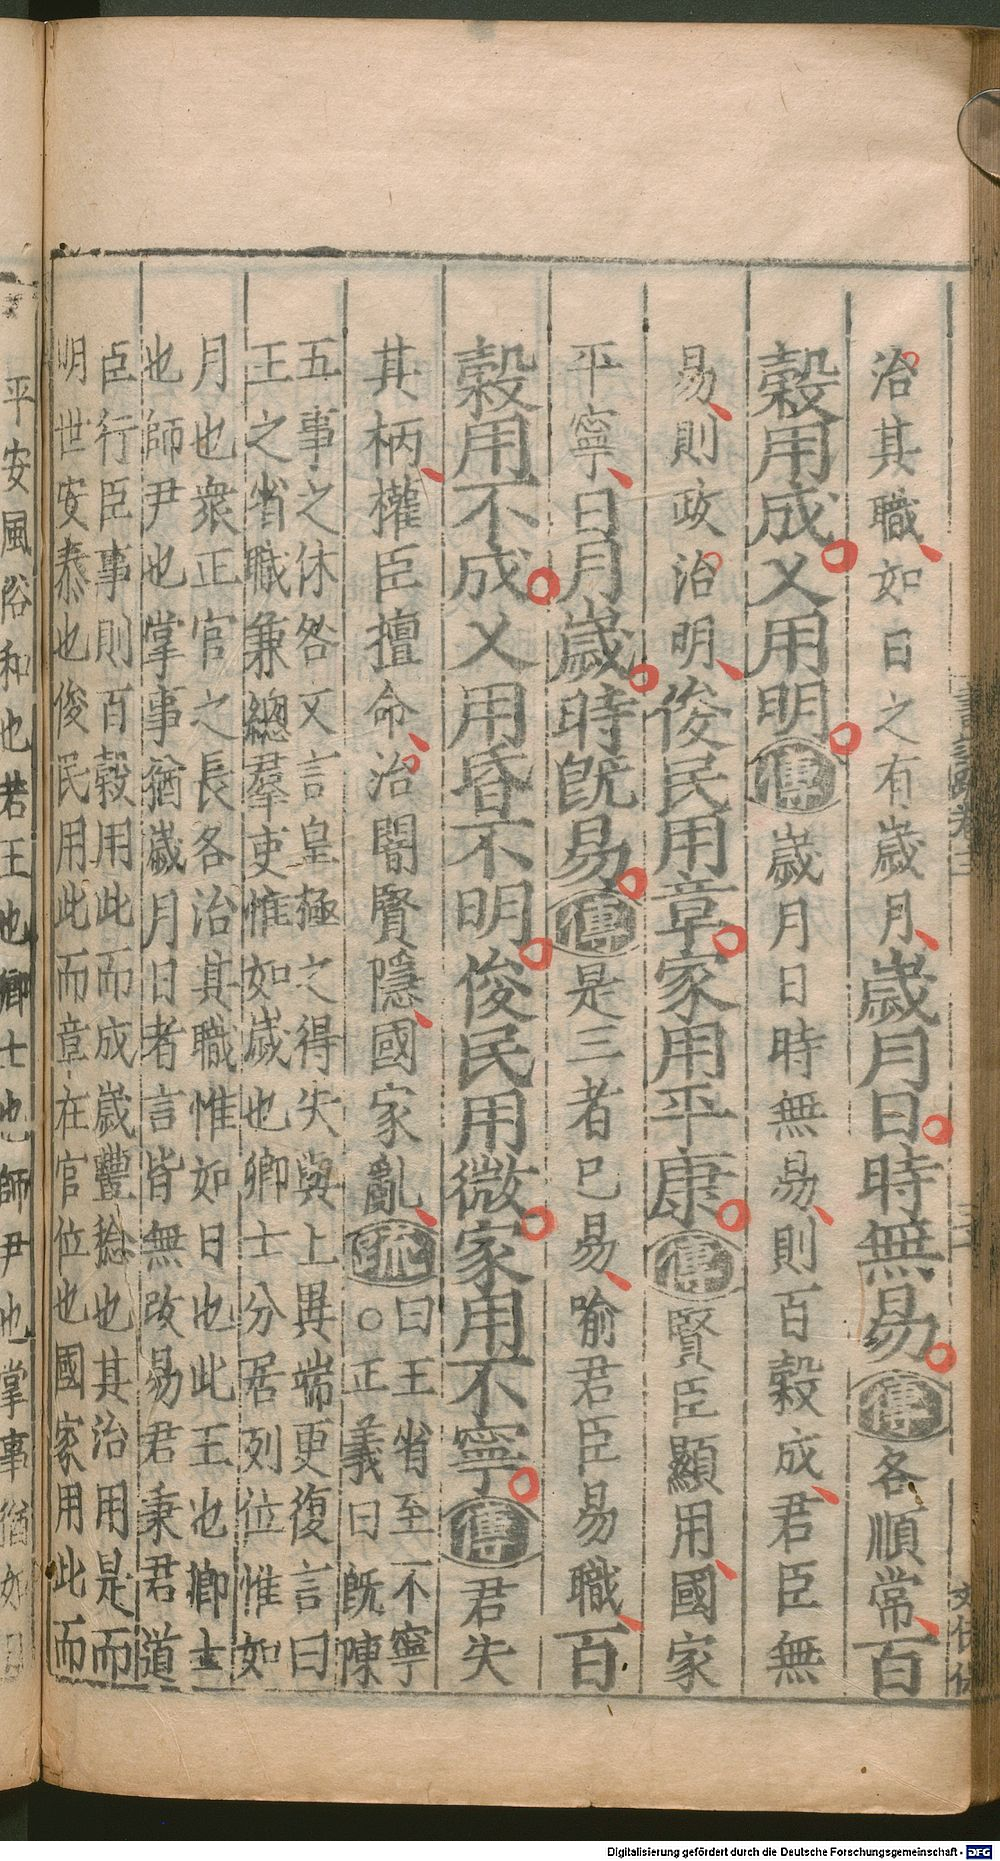 治其職如日之有歲月歲月日時無易傳各順常百
穀用成乂用明傳歲月日時無易則百穀成君臣無
易則政治明俊民用章家用平康傳賢臣顯用國家
平寧日月歲時旣易傳是三者已易喻君臣易職百
穀用不成乂用昏不明俊民用微家用不寧傳君失
其柄權臣擅命治闇賢隱國家亂疏曰王省至不寧
○正義曰旣陳
五事之休咎又言皇極之得失與上異端更復言曰
王之省職兼總羣吏惟如歲也卿士分居列位惟如
月也衆正官之長各治其職惟如日也此王也卿士
也師尹也掌事猶歲月日者言皆無改易君秉君道
臣行臣事則百穀用此而成歲豐稔也其治用是而
明世安泰也俊民用此而章在官位也國家用此而
平安風俗和也若王也卿士也師尹也掌事猶如日
Digitalisierung gefördert durch die Deutsche Forschungsgemeinschaft - DFG